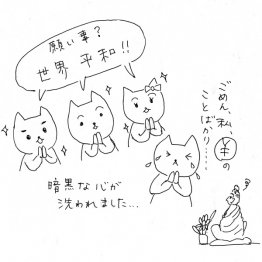 願い事？
世界 平和!!
ごめん、私、
¥の
ことばかり……
暗黒な心が
洗われました…